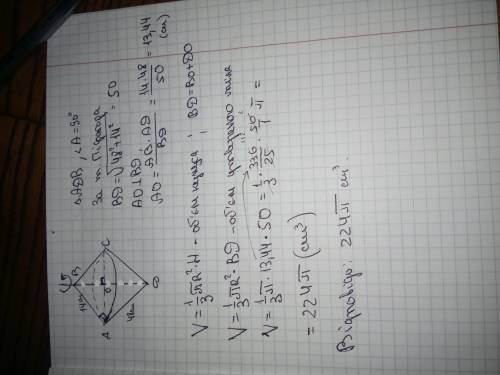 14см
B
A
O
C
D
48см
△ADB, ∠A=90°
За т. Піфагора
BD=√48²+14² = 50
AO⊥BD,
AO = AB·AD/BD = 14·48/50 = 13,44 (см)
V = 1/3 πR²·H - об'єм конуса ; BD=BO+DO
V = 1/3 πR²·BD - об'єм утвореного тіла
V = 1/3 π·13,44·50 = 1/3 · 336/25 · 50/1 π =
= 224π (см³)
Відповідь: 224π см³.